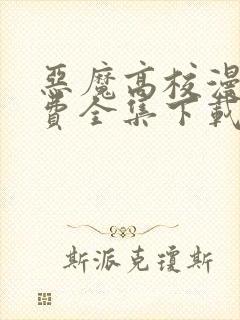 惡魔高校漫
費全集下載
斯派克瓊斯